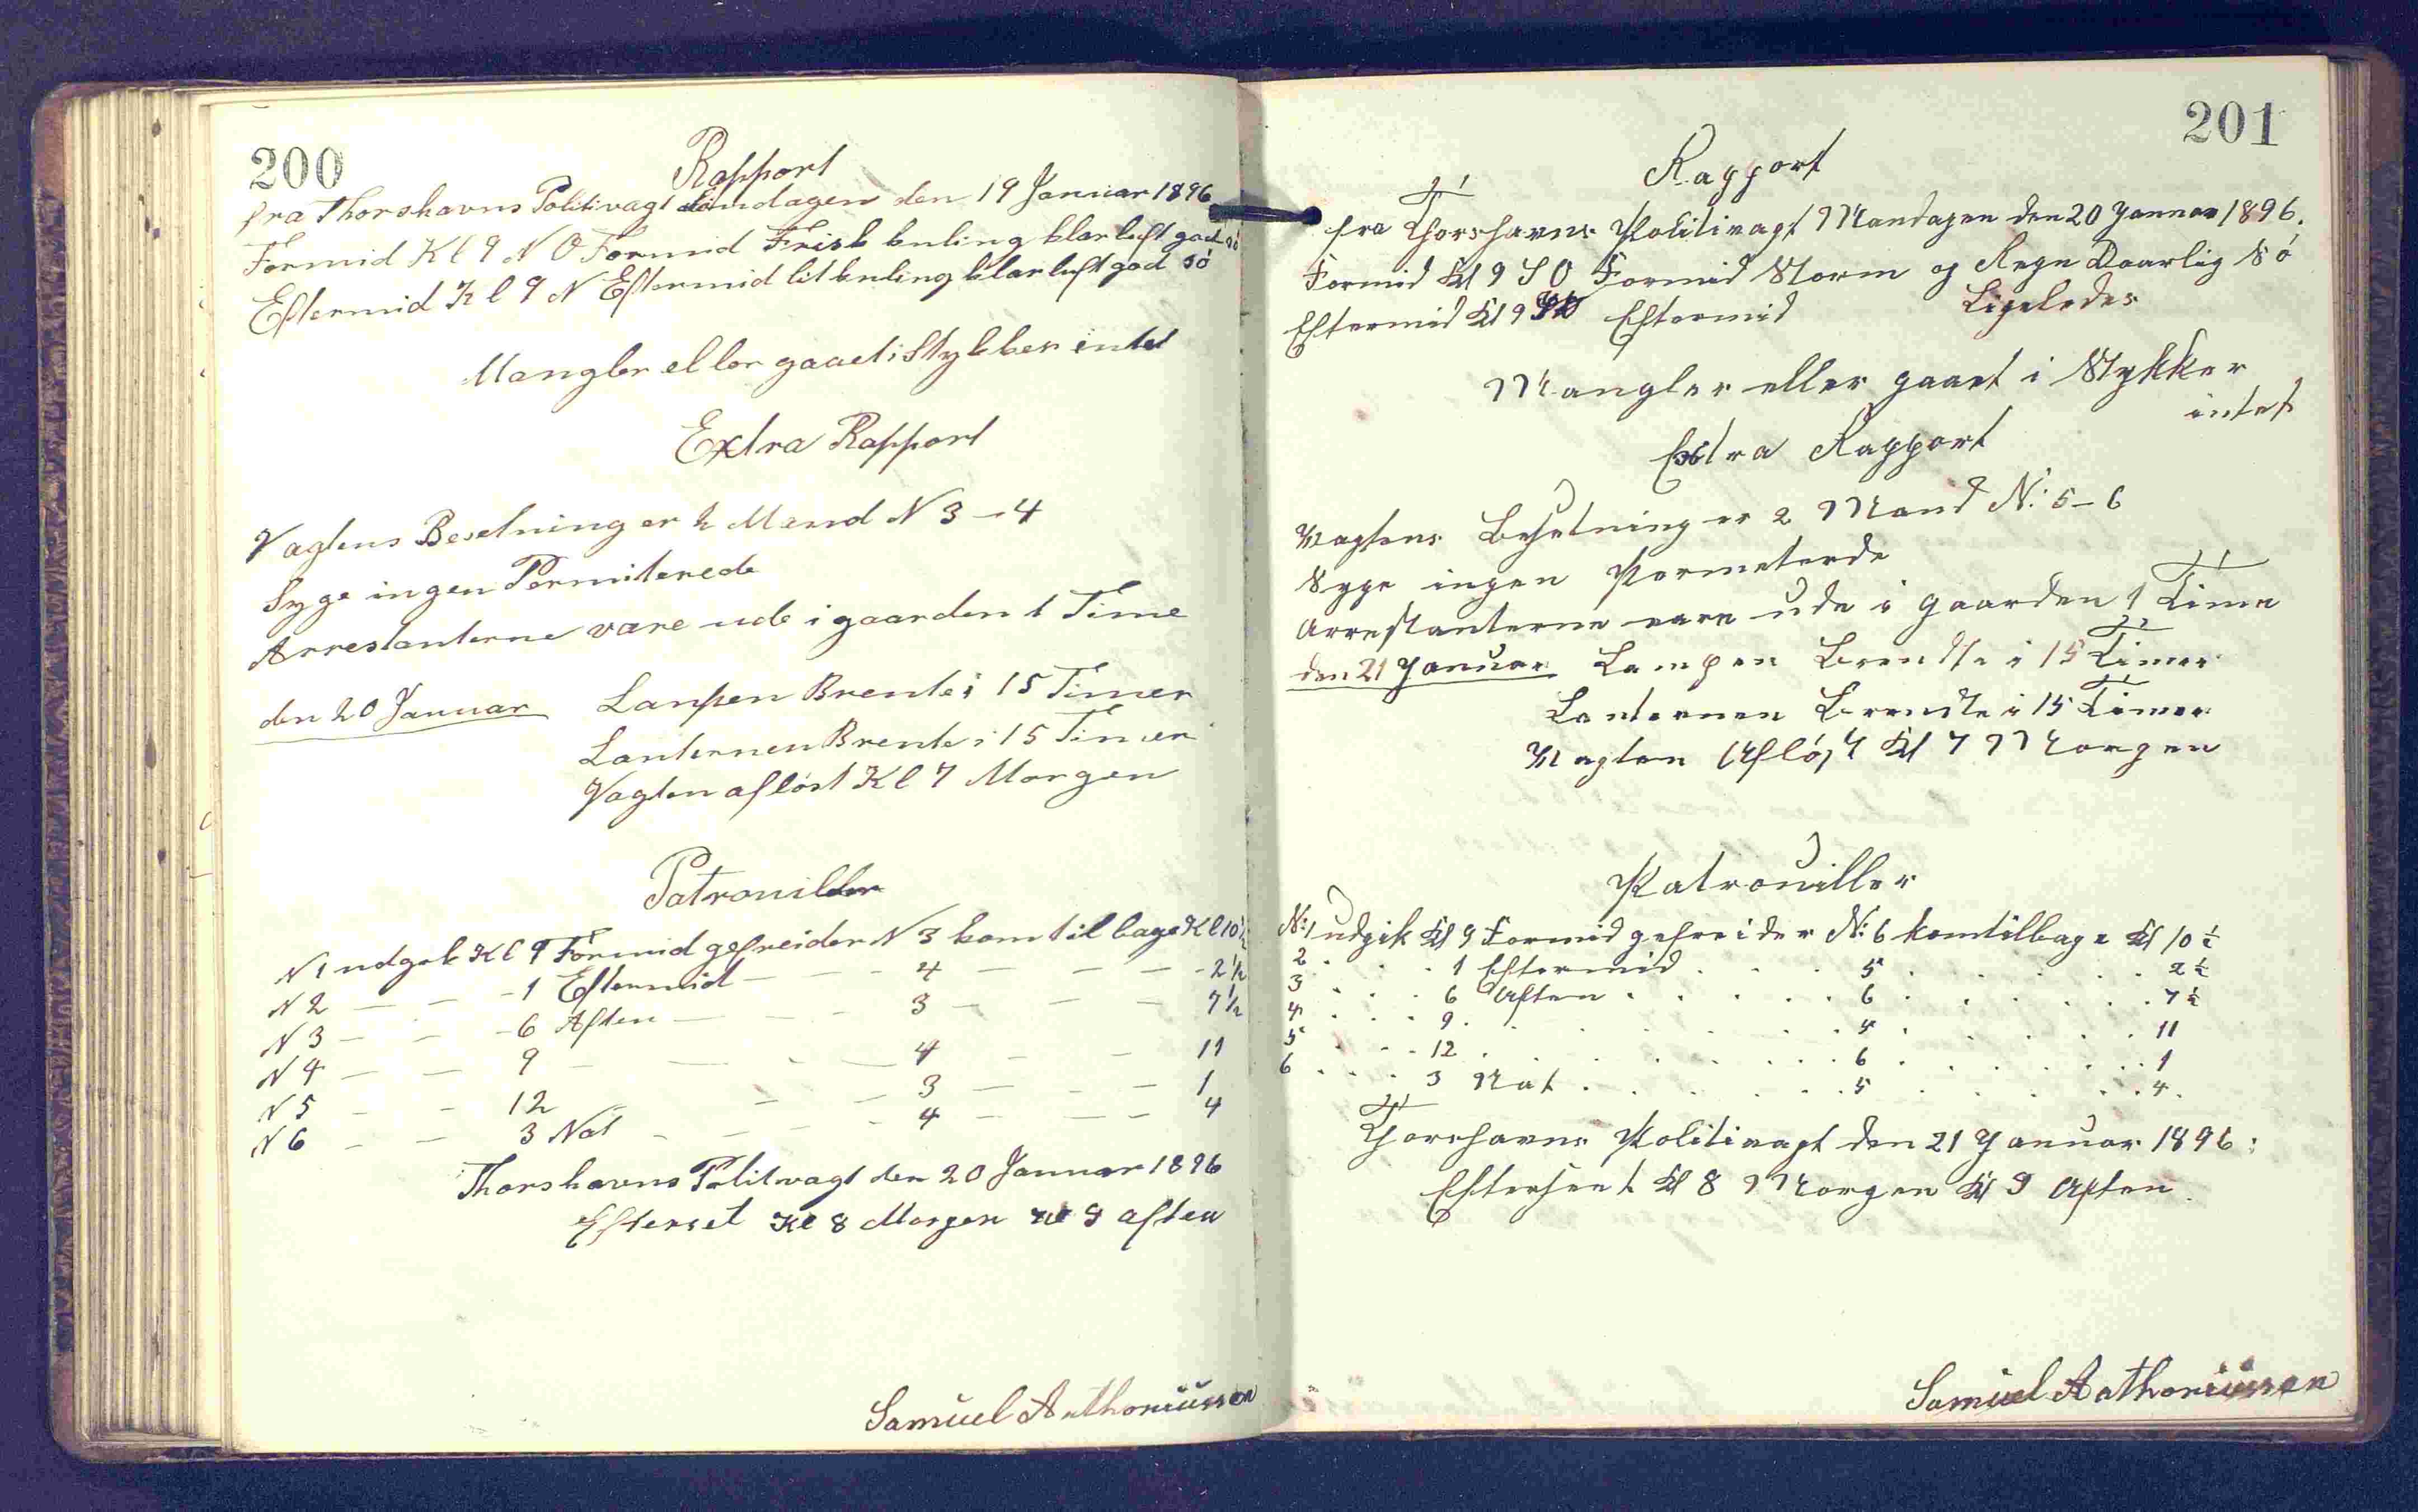 200
Rapport
fra Thorshavns Politivagt Söndagen den 19 Januar 1896
Formid Kl 9 N O Formid Frisk kuling klar luft god sö
Eftermid Kl 9 N Eftermid lit kuling klar luft god sö
Mangler eller gaaet i Stykker intet
Extra Rapport
Vagtens Besetning er 2 Mand N 3 - 4
Syge ingen Permiterede
Arrestanterne vare ude i gaarden 1 Time
den 20 Januar Lanpen Brente i 15 Timer
Lanternen Brente i 15 Timer
Vagten aflöst Kl 7 Morgen
Patrouiller
N 1 udgik Kl 9 Formid gefreider N 3 kom tilbage Kl 10 1/2
N 2 — — - 1 Eftermid — — - 4 — — — - 2 1/2
N 3 — — - 6 Aften — — - 3 — — — 7 1/2
N 4 — — 9 — — - 4 — — 11
N 5 - - 12 — — 3 — - — 1
N 6 — — 3 Nat — — - 4 — — — 4
Thorshavns Politivagt den 20 Januar 1896
Efterset Kl 8 Morgen Kl 9 aften
Samuel Anthoniüssen
201
Rapport
fra Thorshavns Politivagt Mandagen den 20 Januar 1896.
Formid Kl 9 S O Formid Storm og Regn Daarlig Sö
Eftermid Kl 9 Eftermid Ligeledes
Mangler eller gaaet i Stykker
intet
Extra Rapport
Vagtens Besetning er 2 Mand N: 5 - 6
Syge ingen Permeterde
Arrestanterne vare ude i gaarden 1 Time
den 21 Januar Lampen Brendte i 15 Timer
Lanternen Brendte i 15 Timer
Vagten Aflöst Kl 7 Morgen
Patrouiller
N: 1 udgik Kl 9 Formid gefreider N: 6 kom tilbage Kl 10 1/2
2 . . . 1 Eftermid . . . 5 . . . . . 2 1/2
3 . . . 6 Aften . . . . . 6 . . . . . 7 1/2
4 . . . 9 . . . . . . . 5 . . . . . 11
5 . . . 12 . . . . . . . 6 . . . . . 1
6 . . . 3 Nat . . . . . 5 . . . . . 4.
Thorshavns Politivagt den 21 Januar 1896:
Efterseet Kl 8 Morgen Kl 9 Aften.
Samüel Anthoniüssen